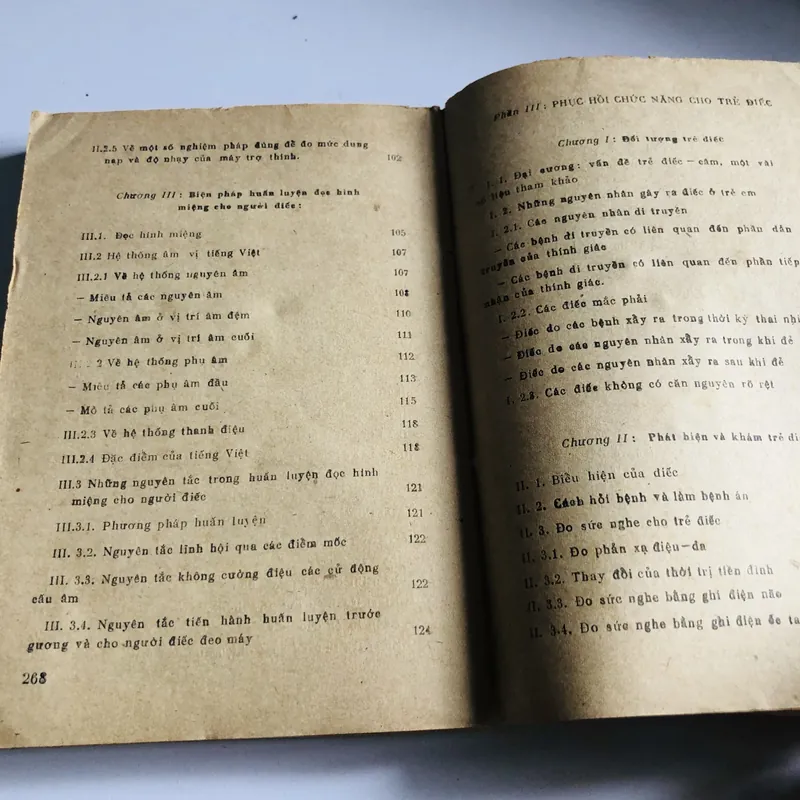 II.2.5 Về một số nghiệm pháp dùng để đo mức dung
nạp và độ nhạy của máy trợ thính. 102
Chương III: Biện pháp huấn luyện đọc hình
miệng cho người điếc:
III.1. Đọc hình miệng 105
III.2 Hệ thống âm vị tiếng Việt 107
III.2.1 Về hệ thống nguyên âm 107
— Miêu tả các nguyên âm 108
— Nguyên âm ở vị trí âm đệm 110
— Nguyên âm ở vị trí âm cuối 111
2 Về hệ thống phụ âm 112
— Miêu tả các phụ âm đầu 113
— Mô tả các phụ âm cuối 115
III.2.3 Về hệ thống thanh điệu 118
III.2.4 Đặc điểm của tiếng Việt 118
III.3 Những nguyên tắc trong huấn luyện đọc hình
miệng cho người điếc 121
III.3.1. Phương pháp huấn luyện 121
III. 3.2. Nguyên tắc lĩnh hội qua các điểm mốc 122
III. 3.3. Nguyên tắc không cường điệu các cử động
cấu âm 122
III. 3.4. Nguyên tắc tiến hành huấn luyện trước
gương và cho người điếc đeo máy 124
268
Phần III: PHỤC HỒI CHỨC NĂNG CHO TRẺ ĐIẾC
Chương I: Đối tượng trẻ điếc
I. 1. Đại cương: vấn đề trẻ điếc—câm, một vài
tham khảo
I. 2. Những nguyên nhân gây ra điếc ở trẻ em
I. 2.1. Các nguyên nhân di truyền
— Các bệnh di truyền có liên quan đến phần dẫn
truyền của thính giác
— Các bệnh di truyền có liên quan đến phần tiếp
nhận của thính giác.
I. 2.2. Các điếc mắc phải
— Điếc do các bệnh xẩy ra trong thời kỳ thai nhi
— Điếc do các nguyên nhân xẩy ra trong khi đẻ
— Điếc do các nguyên nhân xẩy ra sau khi đẻ
I. 2.3. Các điếc không có căn nguyên rõ rệt
Chương II: Phát hiện và khám trẻ
II. 1. Biểu hiện của điếc
II. 2. Cách hỏi bệnh và làm bệnh án
II. 3. Đo sức nghe cho trẻ điếc
II. 3.1. Đo phản xạ điệu—da
II. 3.2. Thay đổi của thời trị tiền đình
II. 3.3. Đo sức nghe bằng ghi điện não
II. 3.4. Đo sức nghe bằng ghi điện ốc